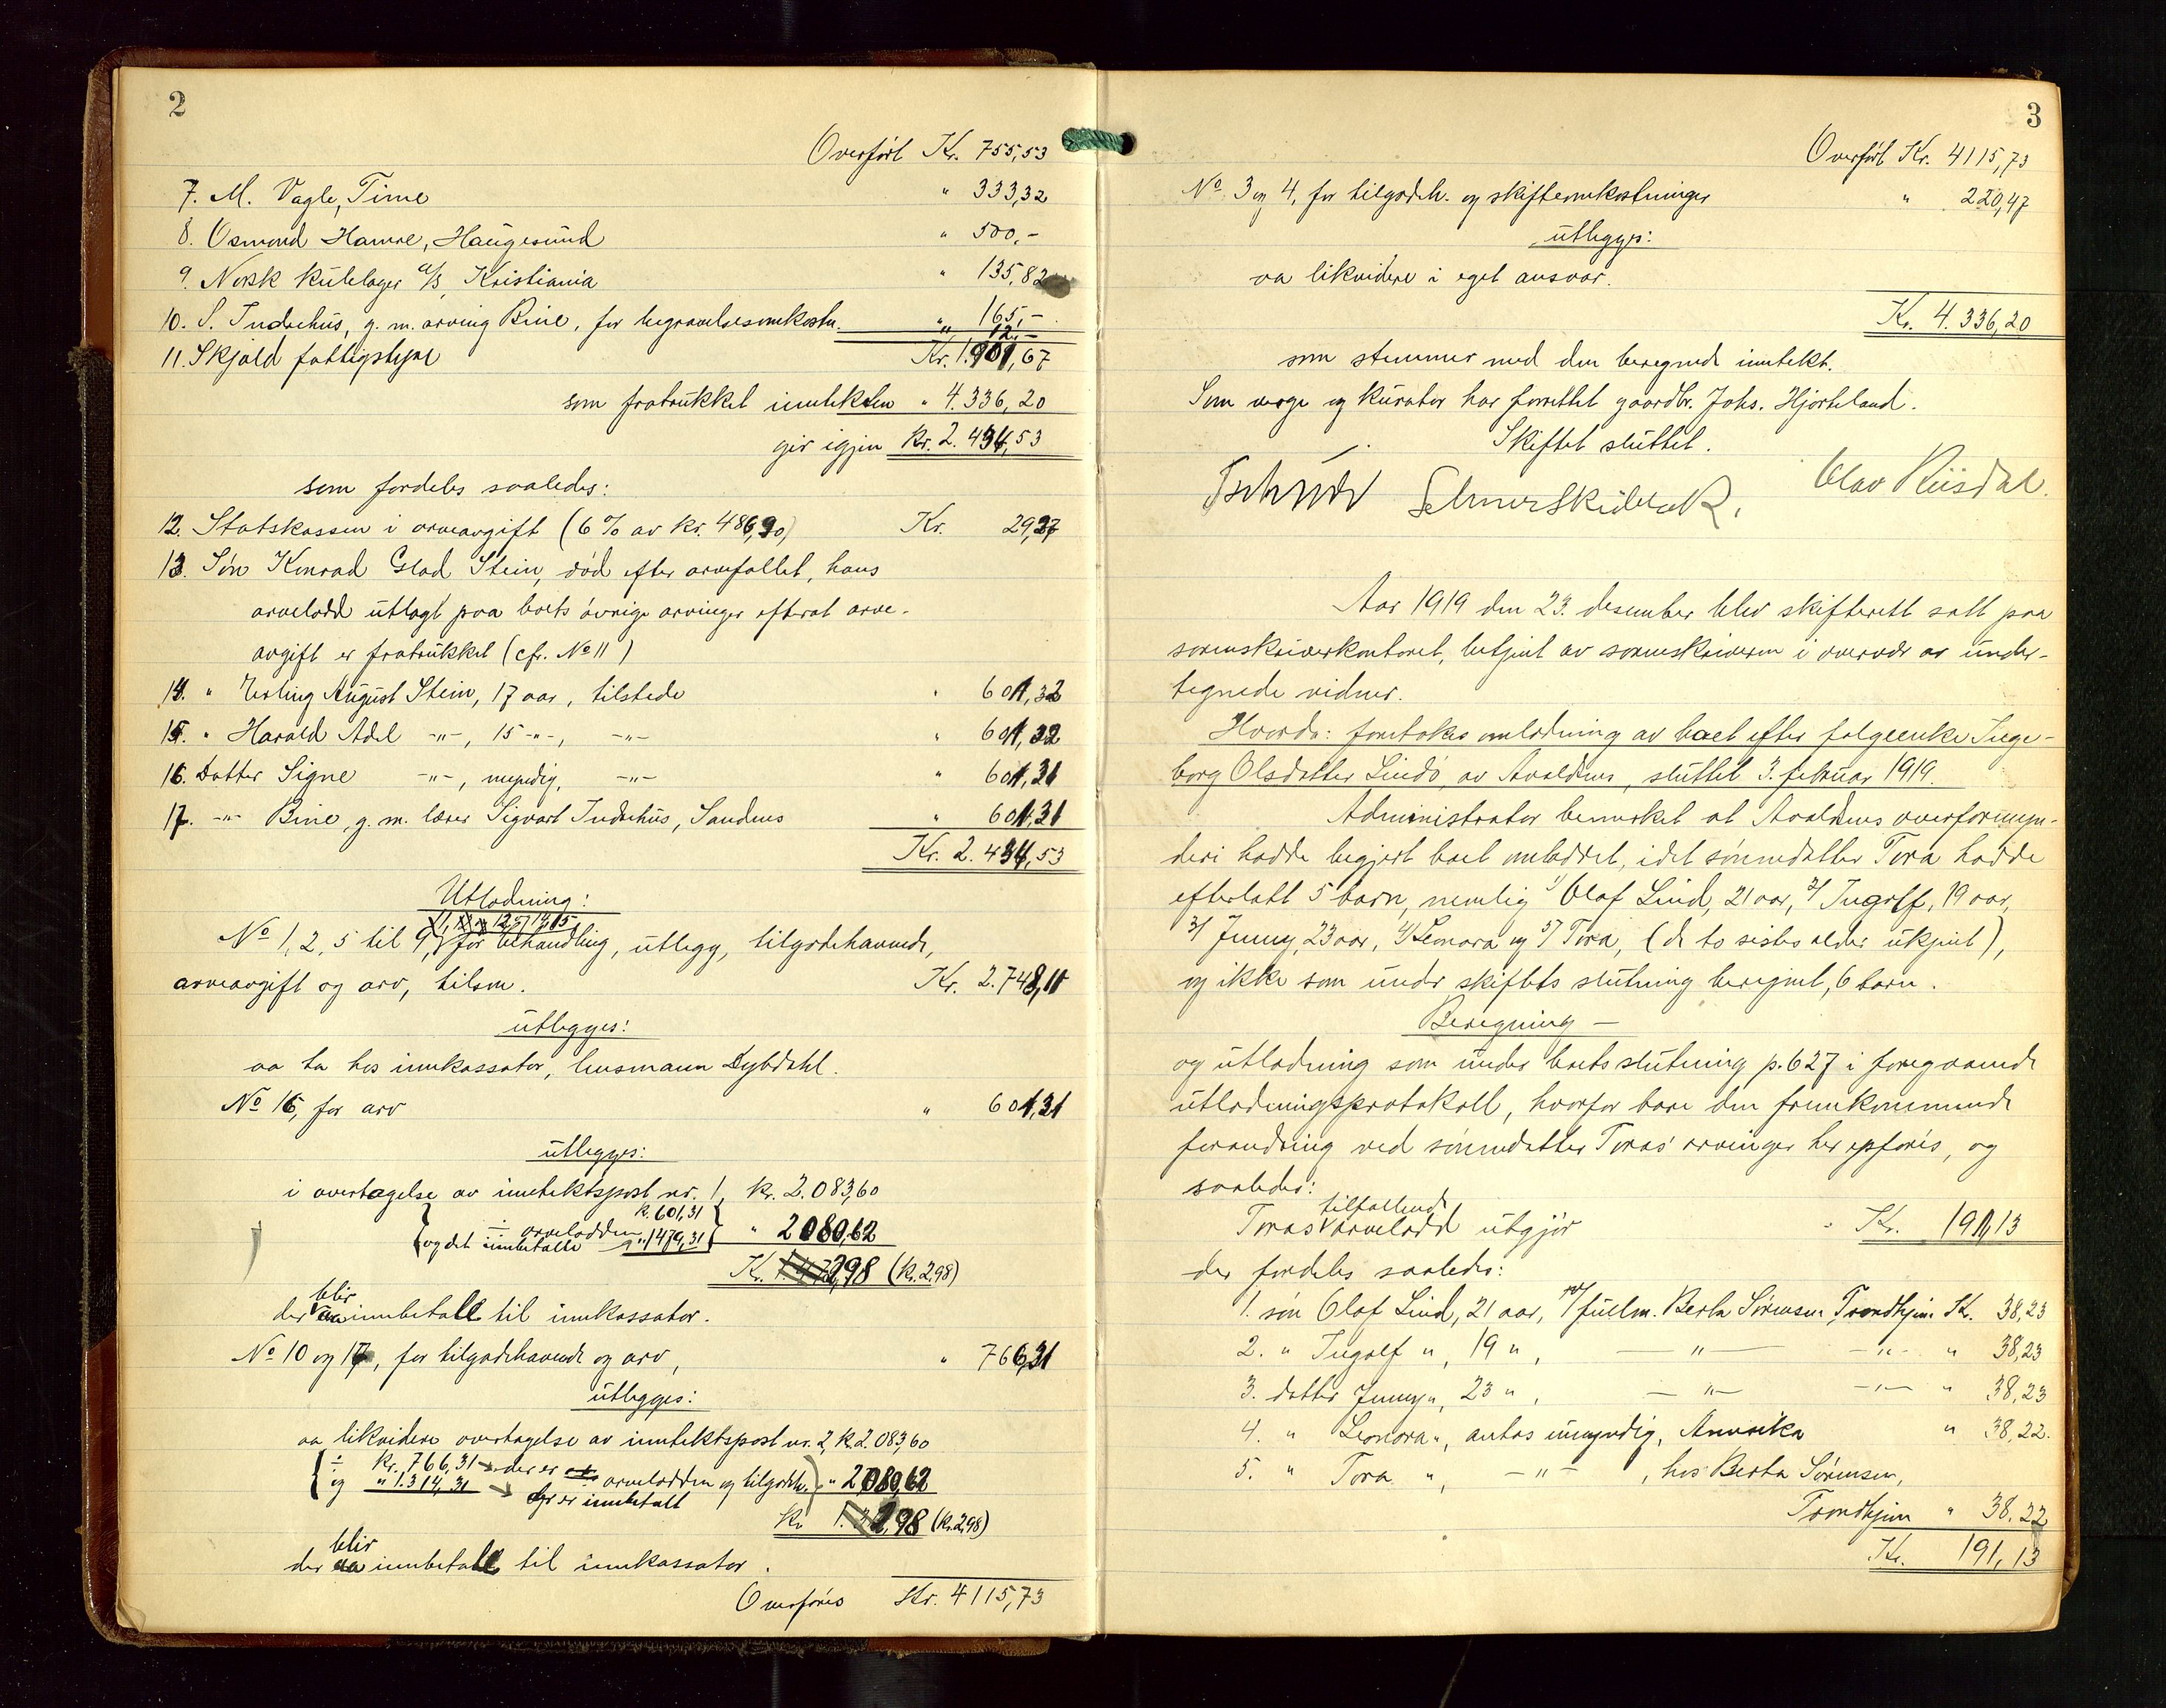 2
Overført Kr. 755,53
7. M. Vagle, Time " 333,32
8. Osmond Hamre, Haugesund " 500,-
9. Norsk Kulelager a/s, Kristiania " 135,82
10. S. Indrehus, g. m. arving Bine, for begravelsesomkostn. " 165,-
" 12,-
11. Skjold fattigstyre Kr. 1.901,67
som fratrukket inntekten " 4.336,20
gir igjen Kr. 2.434,53
som fordeles saaledes:
12. Statskassen i arveavgift (6% av kr. 486,90) Kr. 29,27
13. Søn Konrad Glad Stein, død efter arvefallet, hans
arvelodd utlagt paa boets øvrige arvinger efterat arve-
avgift er fratrukket (cfr. No 11)
14. " Erling August Stein, 17 aar, tilstede " 601,32
15. " Harald Adel -"-, 15 -"-, -"- " 601,32
16. Datter Signe -"-, myndig, -"- " 601,31
17. -"- Bine, g. m. lærer Sigvart Indrehus, Sandnes " 601,31
Kr. 2.434,53
Utlodning:
11, 12, 13, 14, 15
No 1, 2, 5 til 9, for behandling, utlegg, tilgodehavende,
arveavgift og arv, tilsm. Kr. 2.748,11
utlegges:
aa ta hos innkassator, lensmann Dybdahl.
No 16, for arv " 601,31
utlegges:
i overtagelse av inntektspost nr. 1, kr. 2.083,60
÷ arvelodden k. 601,31
og det innbetalte " 1479,31 " 2080,62
Kr. 2,98 (kr. 2,98)
blir
der aa innbetalt til innkassator.
No 10 og 17, for tilgodehavende og arv, " 766,31
utlegges:
aa likvidere overtagelse av inntektspost nr. 2, k. 2.083,60
÷ kr. 766,31 der er arvelodden og tilgodeh. " 2080,62
og " 1.314,31 der er innbetalt
Kr 2,98 (kr. 2,98)
blir
der aa innbetalt til innkassator.
Overføres Kr. 4115,73
3
Overført Kr. 4115,73
No 3 og 4, for tilgodeh. og skifteomkostninger " 220,47
utlegges:
aa likvidere i eget ansvar.
Kr. 4.336,20
som stemmer med den beregnede inntekt.
Som verge og kurator har forrettet gaardbr. Johs. Hjorteland.
Skiftet sluttet.
Olav Riisdal.
Aar 1919 den 23. desember blev skifterett satt paa
sorenskriverkontoret, betjent av sorenskriveren i overvær av under-
tegnede vidner.
Hvorda: foretokes omlodning av boet efter følgeenke Inge-
borg Olsdatter Lindø, av Avaldsnes, sluttet 3. februar 1919.
Administrator bemerket at Avaldsnes overformyn-
deri hadde begjert boet omloddet, idet sønnedatter Tora hadde
efterlatt 5 barn, nemlig 1/ Olaf Lind, 21 aar, 2/ Ingolf, 19 aar,
3/ Jenny, 23 aar, 4/ Leonora og 5/ Tora, (de to sistes alder ukjent),
og ikke som under skiftets slutning beregnet, 6 barn.
Beregning -
og utlodning som under boets slutning p. 627 i foregaaende
utlodningsprotokoll, hvorfor bare den fremkommende
forandring ved sønnedatter Toras arvinger her opføres, og
saaledes:
tilfallende
Toras arvelodd utgjør Kr. 191,13
der fordeles saaledes:
1. søn Olaf Lind, 21 aar, v/ fullm. Berta Sørensen, Trondhjem Kr. 38,23
2. " Ingolf ", 19 ", -"- -"- " 38,23
3. datter Jenny ", 23 ", -"- -"- " 38,23
4. " Leonora ", antas umyndig, Amerika " 38,22.
5. " Tora ", -"-, hos Berta Sørensen,
Trondhjem " 38.22
Kr. 191,13